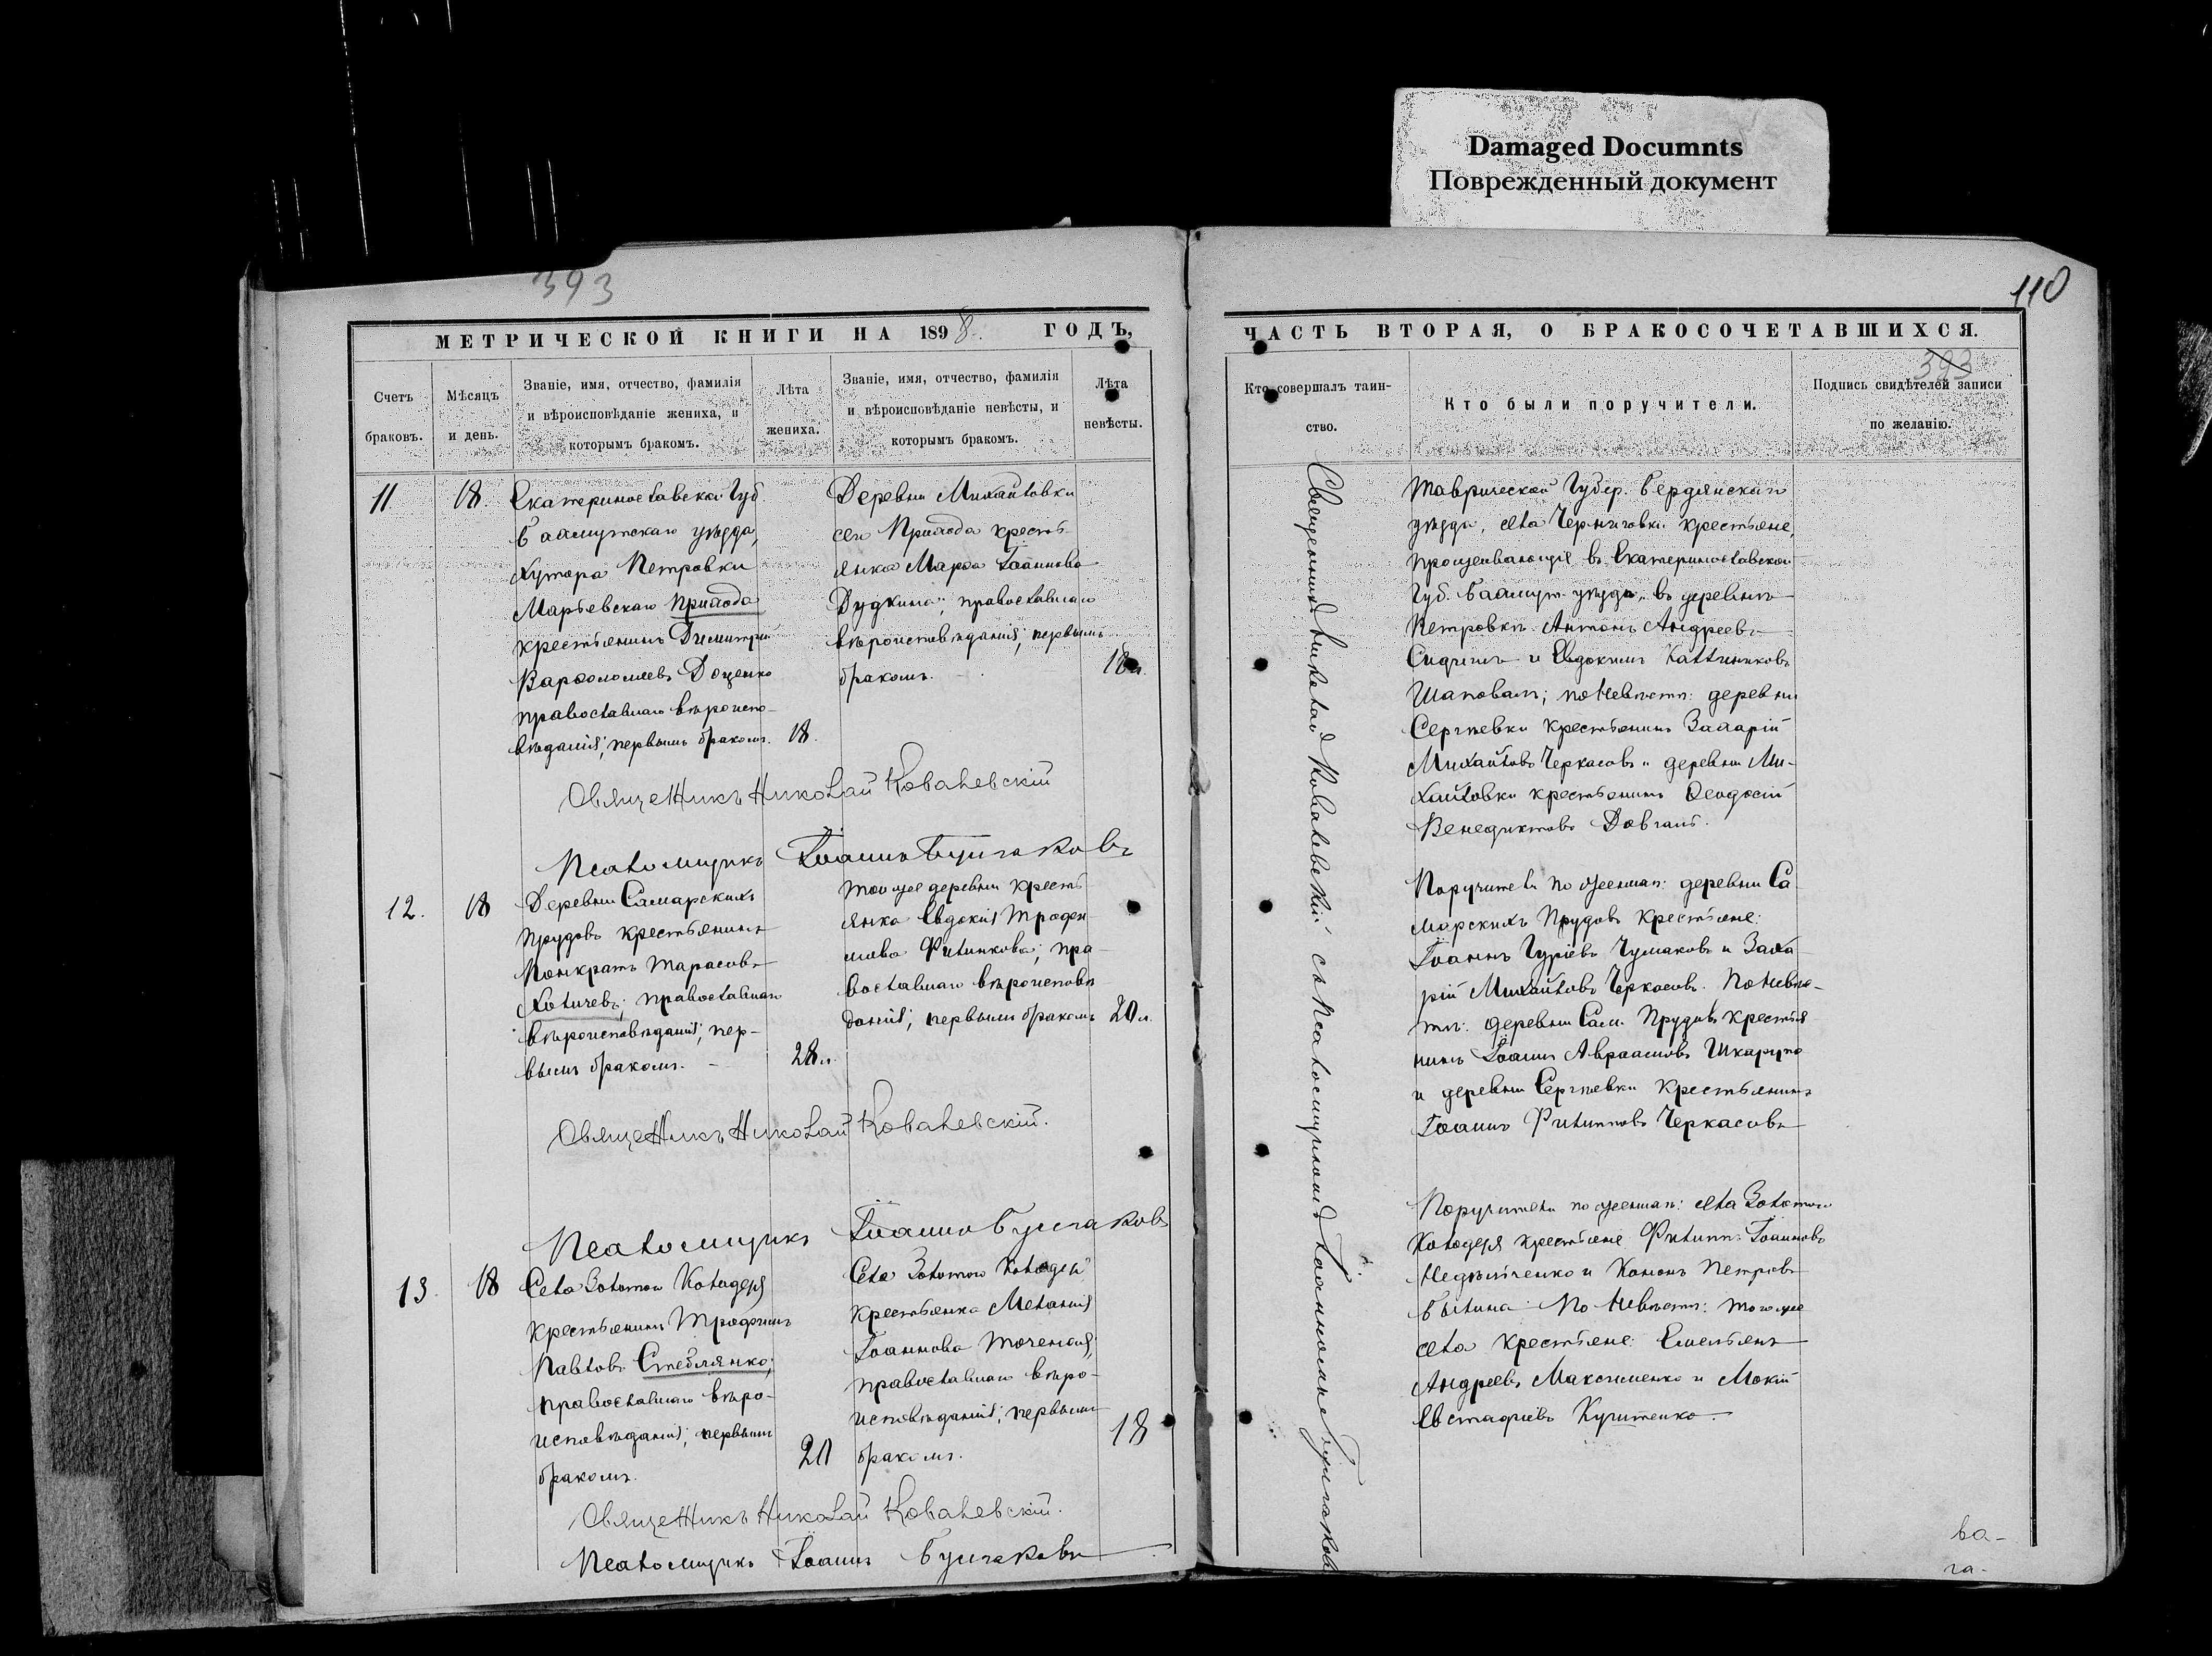 Damaged Documnts
Поврежденный документ
393
110
МЕТРИЧЕСКОЙ КНИГИ НА 1898 ГОДЪ,
Счетъ
браковъ.
Мѣсяцъ
и день.
Званіе, имя, отчество, фамилія
и вѣроисповѣданіе жениха, и
которымъ бракомъ.
Лѣта
жениха.
Званіе, имя, отчество, фамилія
и вѣроисповѣданіе невѣсты, и
которымъ бракомъ.
Лѣта
невѣсты.
11
18.
Екатеринославской Губ
Бахмутскаго уѣзда,
Хутора Петровки
Марьевскаго Прихода
крестьянинъ Димитрій
Варѳоломеевъ Доценко
православнаго вѣроиспо-
вѣданія; первымъ бракомъ.
18.
Деревни Михайловки
сего Прихода кресть-
янка Марѳа Іоаннова
Дудкина; православнаго
вѣроисповѣданія; первымъ
бракомъ.
18 л.
Священникъ Николай Ковалевскій
Псаломщикъ Іоаннъ Булгаковъ
12.
18
Деревни Самарскихъ
Прудовъ крестьянинъ
Панкратъ Тарасовъ
Холичевъ; православнаго
вѣроисповѣданія; пер-
вымъ бракомъ.
28 л.
Той же деревни кресть-
янка Евдокія Трофи-
мова Филипкова; пра-
вославнаго вѣроисповѣ
данія; первымъ бракомъ
20 л.
Священникъ Николай Ковалевскій.
Псаломщикъ Іоаннъ Булгаковъ
13.
18
Села Золотого Колодезя
крестьянинъ Трофимъ
Павловъ Стеблянко;
православнаго вѣро-
исповѣданія; первымъ
бракомъ.
20
Села Золотого Колодезя
крестьянка Меланія
Іоаннова
православнаго вѣро-
исповѣданія; первымъ
бракомъ.
18
Священникъ Николай Ковалевскій.
Псаломщикъ Іоаннъ Булгаковъ
ЧАСТЬ ВТОРАЯ, О БРАКОСОЧЕТАВШИХСЯ.
393
Кто совершалъ таин-
ство.
Кто были поручители.
Подпись свидѣтелей записи
по желанію.
Священникъ Николай Ковалевскій съ Псаломщикомъ Іоанномъ Булгаковъ
Таврической Губер. Бердянскаго
уѣзда, села Черниговки крестьяне,
проживающіе въ Екатеринославской
Губ. Бахмут. уѣзда, въ деревнѣ
Петровкѣ Антонъ Андреевъ
и Евдокимъ Каллиниковъ
Шаповалъ; по невѣстѣ: деревни
Сергѣевки крестьянинъ Захарій
Михайловъ Черкасовъ и деревни Ми-
хайловки крестьянинъ Ѳеодосій
Венедиктовъ Довгаль.
Поручители по женихѣ: деревни Са
марскихъ Прудовъ крестьяне:
Іоаннъ Гуріевъ Чумаковъ и Заха-
рій Михайловъ Черкасовъ. По невѣс-
тѣ: деревни Сам. Прудовъ крестья
нинъ Іоаннъ Авраамовъ Шкарупа
и деревни Сергѣевки крестьянинъ
Іоаннъ Филипповъ Черкасовъ
Поручители по женихѣ: села Золотого
Колодезя крестьяне Филиппъ Іоанновъ
и Кононъ Петровъ
Былина. По невѣстѣ: того же
села крестьяне: Емельянъ
Андреевъ Максименко и Мокій
Евстафіевъ
ва-
га-